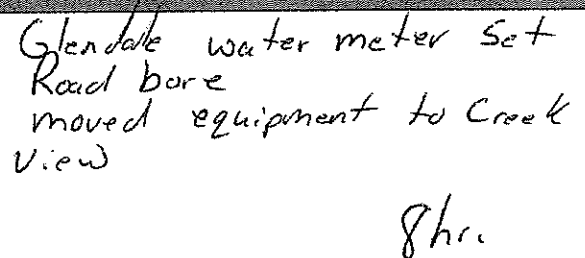 Glendale water meter Set
Road bore
moved equipment to Creek
View
8hr.